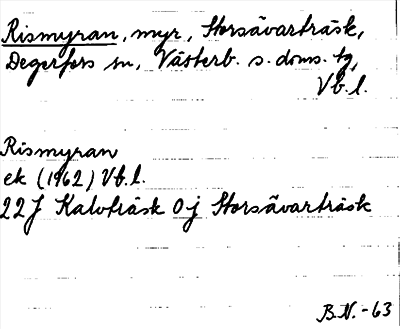 Rismyran, myr, Storsävarträsk,
Degerfors sn, Västerb. s. doms. tg,
Vb. l.
Rismyran
ek (1962) Vb. l.
22J Kalvträsk 0j Storsävarträsk
B.N. -63